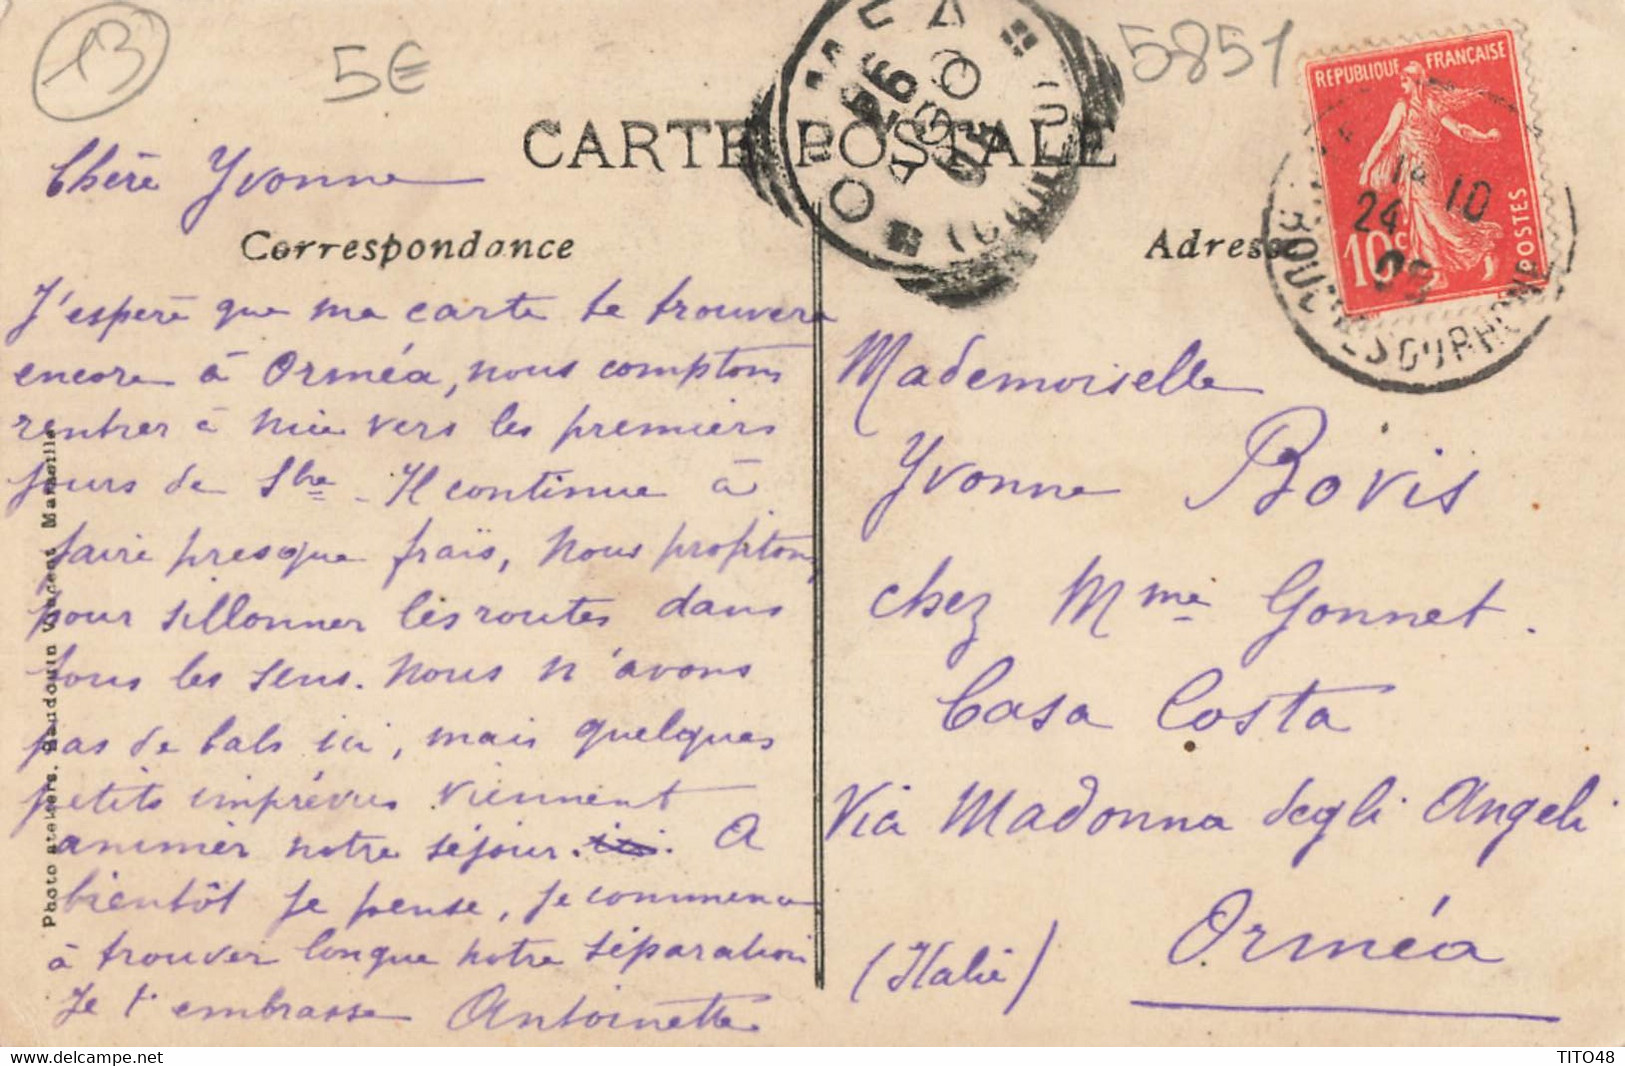 13
5€
5851
CARTE POSTALE
RÉPUBLIQUE FRANÇAISE
10c
POSTES
ORMEA
26
AGO
(CUNEO)
24 10
BOUCHES DU RHONE
Chère Yvonne
Correspondance
J'espère que ma carte te trouvera
encore à Orméa, nous comptons
rentrer à Nice vers les premiers
jours de Sbre. Il continue à
faire presque frais, nous profitons
pour sillonner les routes dans
tous les sens. Nous n'avons
pas de bals ici, mais quelques
petits imprévus viennent
animer notre séjour. A
bientôt je pense, je commence
à trouver longue notre séparation
Je t'embrasse Antoinette
Adresse
Mademoiselle
Yvonne Bovis
chez Mme Gonnet.
Casa Costa
Via Madonna degli Angeli
Orméa
(Italie)
Photo ateliers. Baudouin Vincent Marseille
delcampe.net
TITO48